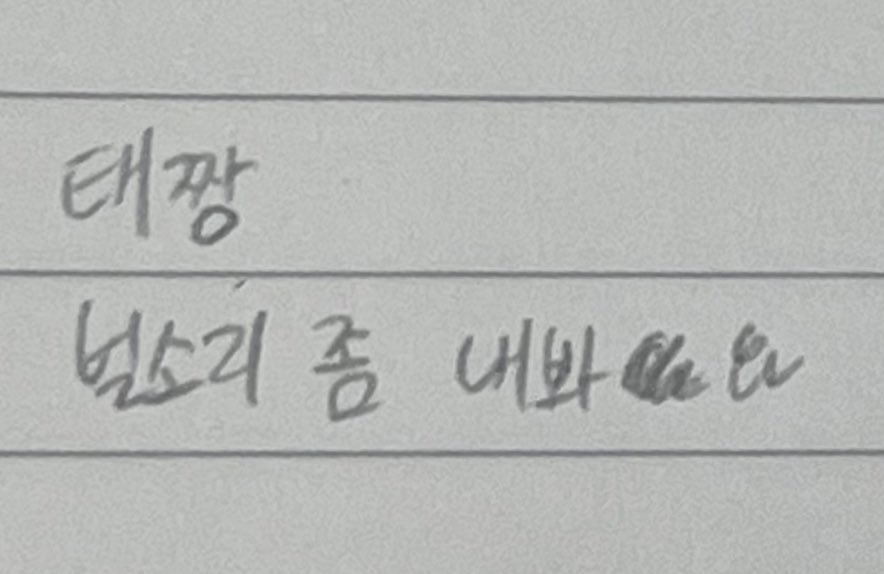 태짱
벌소리 좀 내봐요